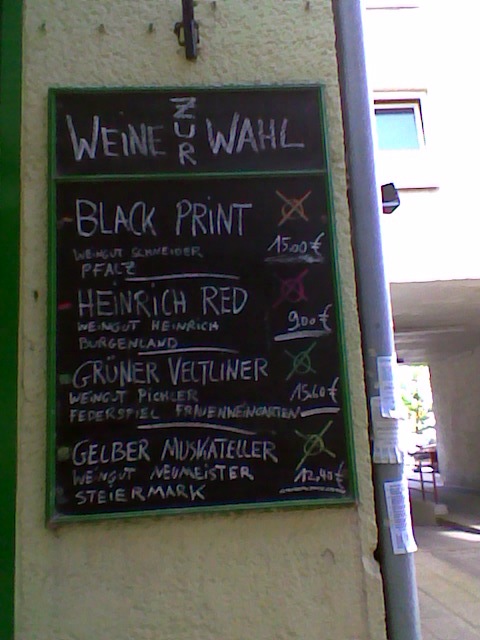 WEINE ZUR WAHL
BLACK PRINT
WEINGUT SCHNEIDER 15.00 €
PFALZ
HEINRICH RED
WEINGUT HEINRICH 9,00 €
BURGENLAND
GRÜNER VELTLINER
WEINGUT PICHLER 15.60 €
FEDERSPIEL FRAUENWEINGARTEN
GELBER MUSKATELLER
WEINGUT NEUMEISTER 12,40 €
STEIERMARK